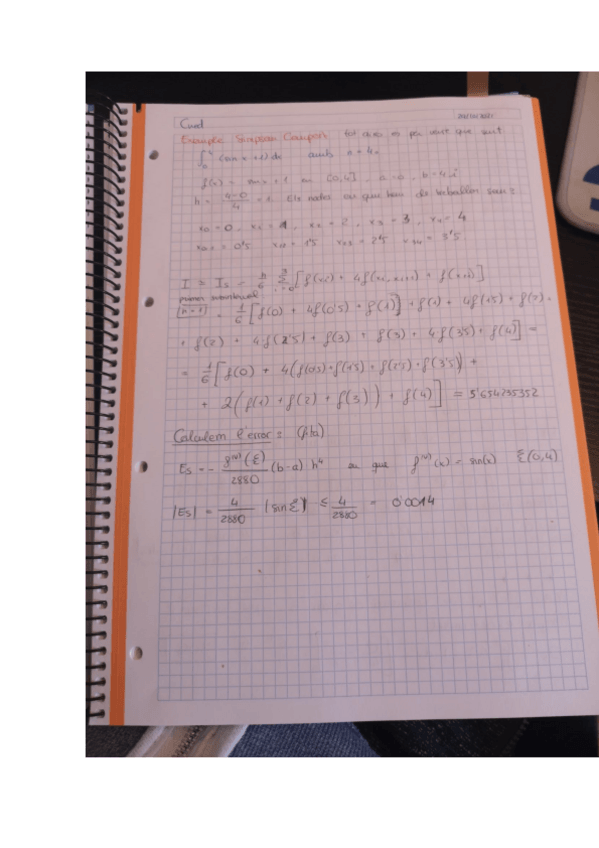 Cned
Exemple Simpson Compost
∫₀⁴ (sin x + 1) dx amb n = 4
f(x) = sin x + 1 en [0,4], a = 0, b = 4
h = (4-0)/4 = 1. Els nodes en que hem de treballar són:
x₀ = 0, x₁ = 1, x₂ = 2, x₃ = 3, x₄ = 4
= 0'5 = 1'5 = 2'5 = 3'5
I ≈ I_S = h/6 Σ [f(xᵢ) + 4f(xᵢ, xᵢ₊₁) + f(xᵢ₊₁)]
[h = 1] = 1/6 [f(0) + 4f(0'5) + f(1)] + f(1) + 4f(1'5) + f(2) +
+ f(2) + 4f(2'5) + f(3) + f(3) + 4f(3'5) + f(4)] =
= 1/6 [f(0) + 4(f(0'5) + f(1'5) + f(2'5) + f(3'5)) +
+ 2(f(1) + f(2) + f(3)) + f(4)] = 5'654235352
Calculem l'error: (fita)
E_S = - f⁽ᴵⱽ⁾(ξ)/2880 (b-a) h⁴ en que f⁽ᴵⱽ⁾(x) = sin(x) ξ(0,4)
|E_S| = 4/2880 |sin ξ| ≤ 4/2880 = 0'0014